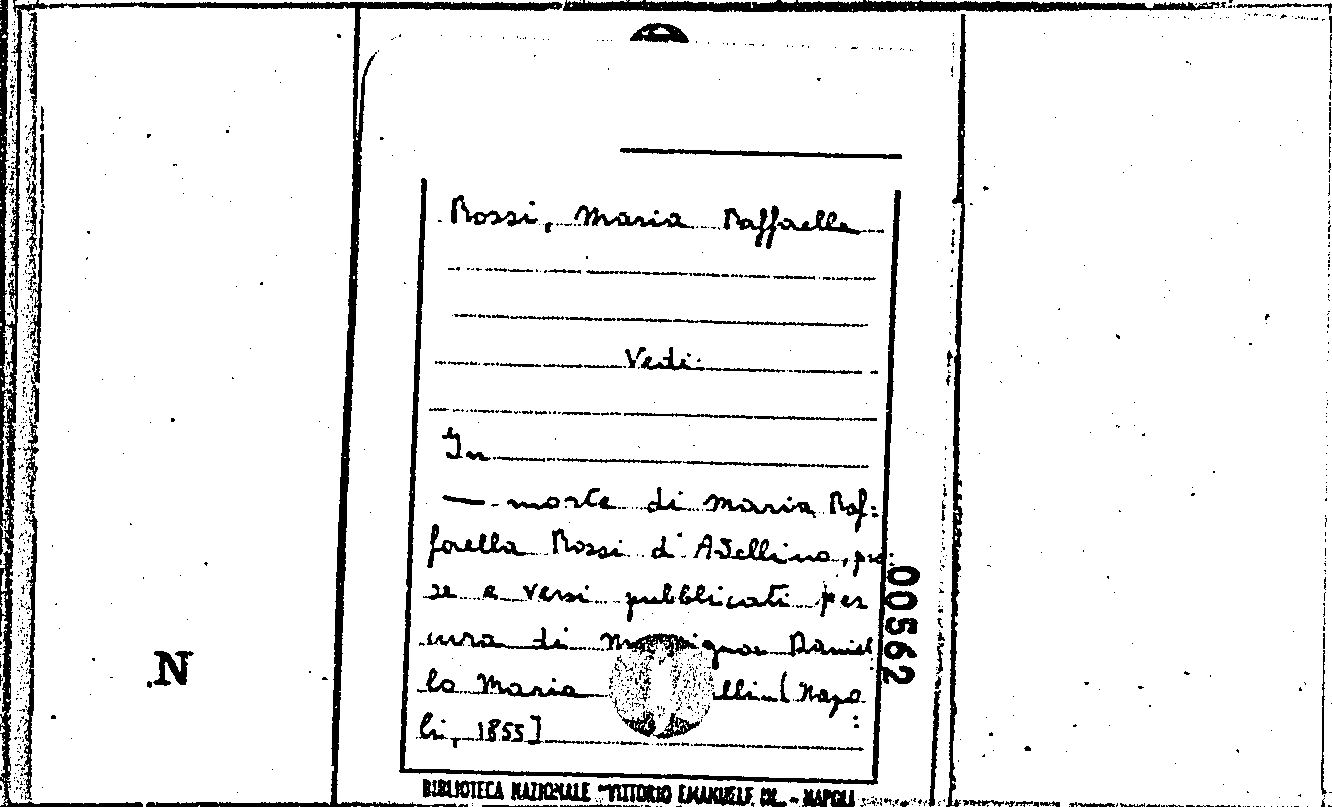 Rossi, Maria Raffaella
Vedi:
In
— morte di Maria Raf=
faella Rossi d'Avellino, pro
se e versi pubblicati per
cura di Daniel
lo Maria [Napo
li, 1855]
00562
N
BIBLIOTECA NAZIONALE "VITTORIO EMANUELE III" - NAPOLI